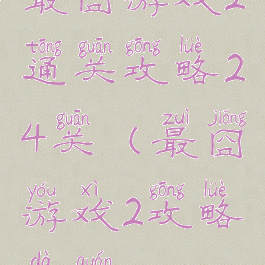 最囧游戏2
tōng guān gōng lüè
通关攻略2
guān zuì jiǒng
4关(最囧
yóu xì gōng lüè
游戏2攻略
dà quán